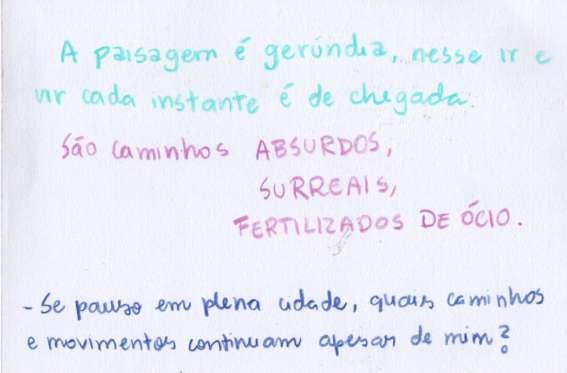 A paisagem é gerúndia, nesse ir e
vir cada instante é de chegada.
São caminhos ABSURDOS,
SURREAIS,
FERTILIZADOS DE ÓCIO.
- Se pauso em plena cidade, quais caminhos
e movimentos continuam apesar de mim?